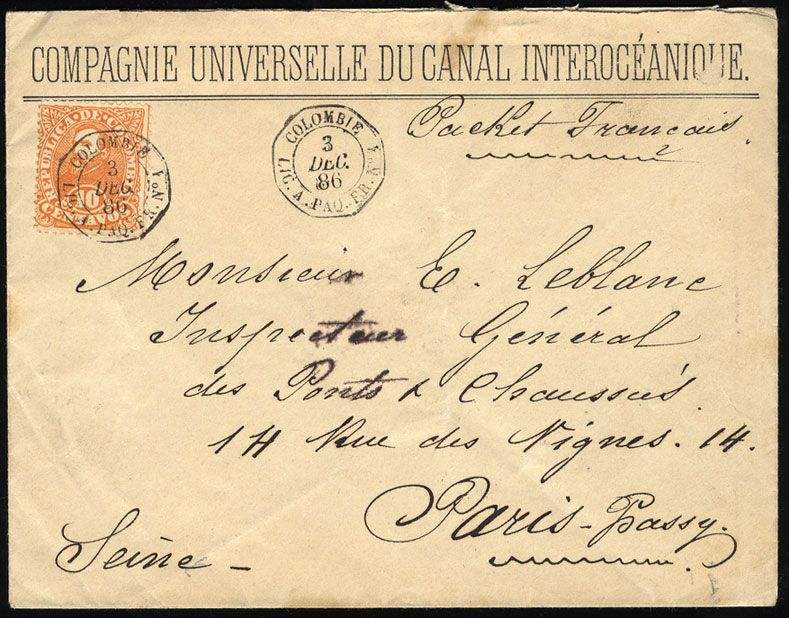 COMPAGNIE UNIVERSELLE DU CANAL INTEROCÉANIQUE.
REPUBLICA DE COLOMBIA
10
CENTAVOS
COLOMBIE
3
DEC.
86
LIG. A. PAQ. FR. Nº
COLOMBIE
3
DEC.
86
LIG. A. PAQ. FR. Nº
Packet Français
Monsieur E. Leblanc
Inspecteur Général
des Ponts & Chaussés.
14 Rue des Vignes. 14.
Paris-Passy.
Seine -